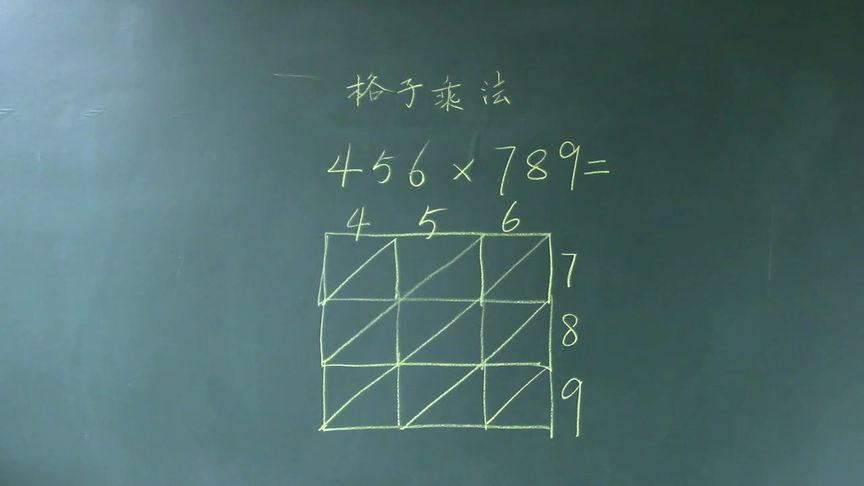 格子乘法
456×789=
4 5 6
7
8
9